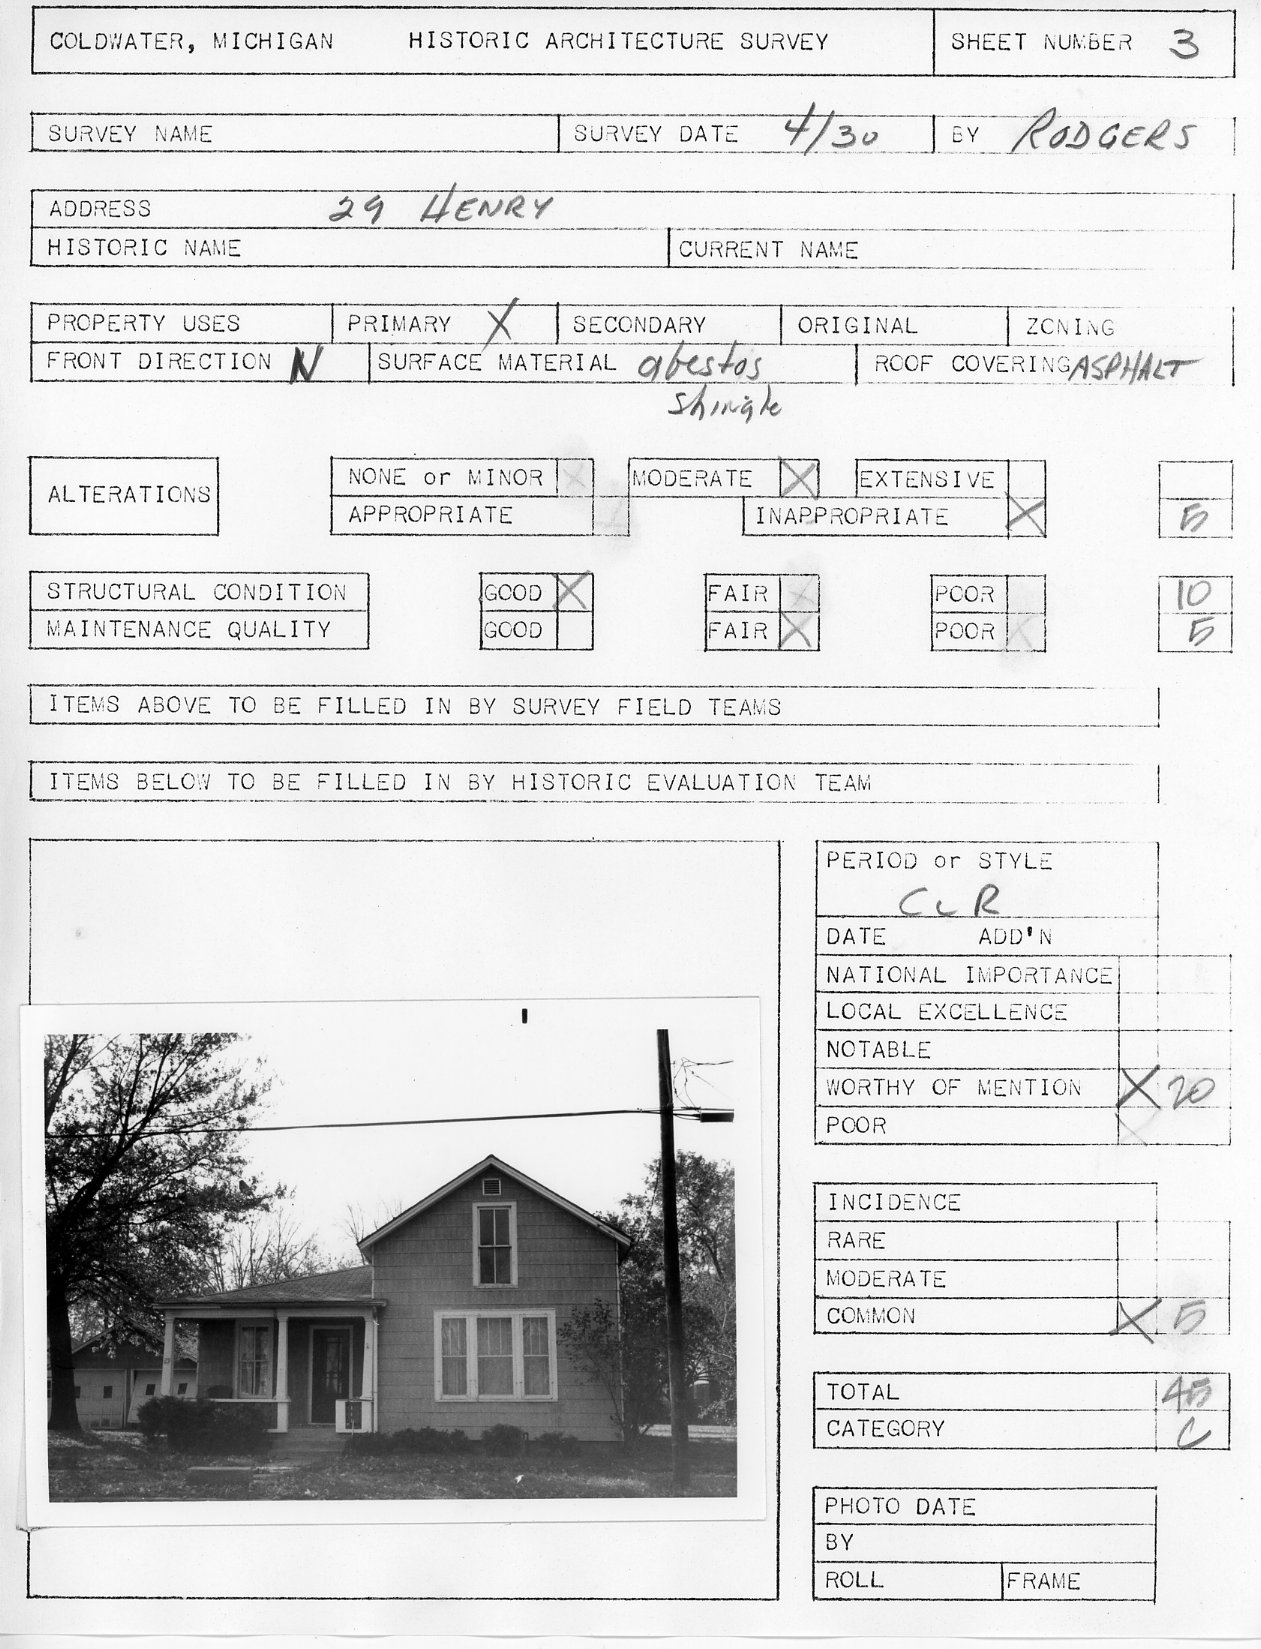 COLDWATER, MICHIGAN HISTORIC ARCHITECTURE SURVEY SHEET NUMBER 3
SURVEY NAME SURVEY DATE 4/30 BY RODGERS
ADDRESS 29 HENRY
HISTORIC NAME CURRENT NAME
PROPERTY USES PRIMARY X SECONDARY ORIGINAL ZONING
FRONT DIRECTION N SURFACE MATERIAL abestos ROOF COVERING ASPHALT
shingle
ALTERATIONS NONE or MINOR X MODERATE X EXTENSIVE
APPROPRIATE INAPPROPRIATE X 5
STRUCTURAL CONDITION GOOD X FAIR X POOR 10
MAINTENANCE QUALITY GOOD FAIR X POOR X 5
ITEMS ABOVE TO BE FILLED IN BY SURVEY FIELD TEAMS
ITEMS BELOW TO BE FILLED IN BY HISTORIC EVALUATION TEAM
PERIOD or STYLE
DATE ADD'N
NATIONAL IMPORTANCE
LOCAL EXCELLENCE
NOTABLE
WORTHY OF MENTION X 20
POOR
INCIDENCE
RARE
MODERATE
COMMON X 5
TOTAL 45
CATEGORY C
PHOTO DATE
BY
ROLL FRAME